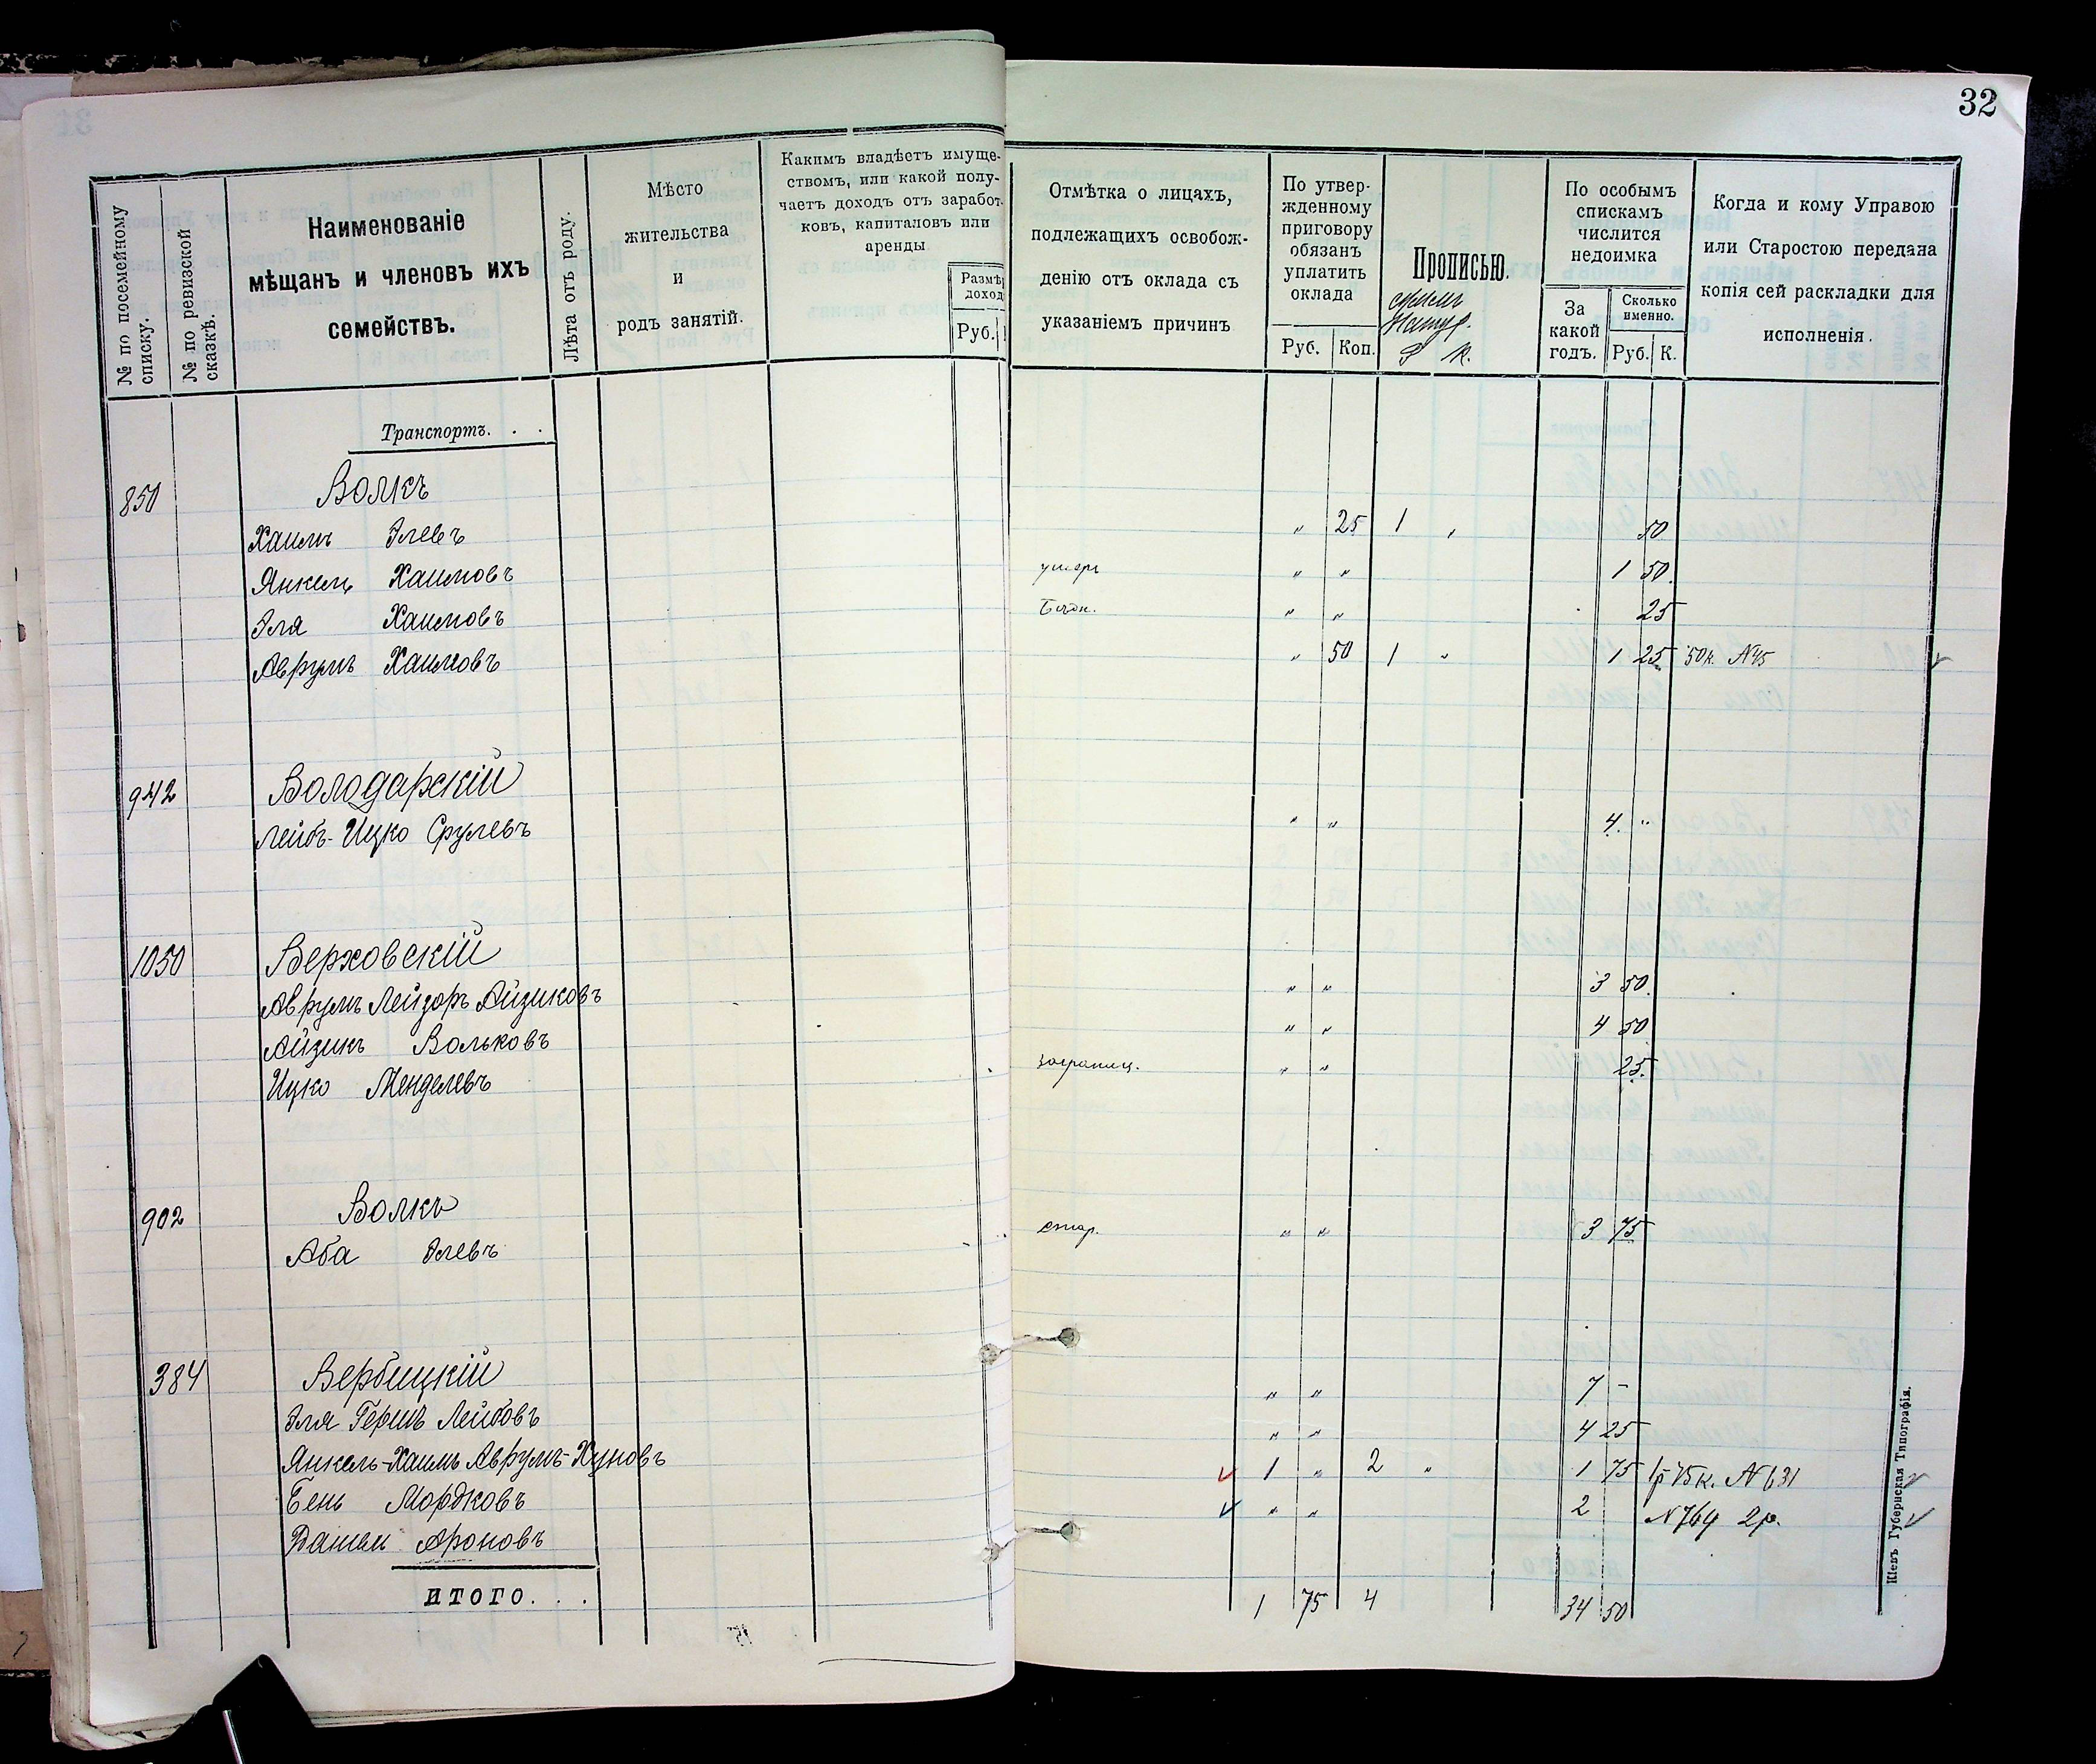 32
№ по посемейному списку.
№ по ревизской сказкѣ.
Наименованіе
мѣщанъ и членовъ ихъ
семействъ.
Лѣта отъ роду.
Мѣсто
жительства
и
родъ занятій.
Какимъ владѣетъ имуще-
ствомъ, или какой полу-
чаетъ доходъ отъ заработ-
ковъ, капиталовъ или
аренды
Размѣ
доход
Руб.
Отмѣтка о лицахъ,
подлежащихъ освобож-
денію отъ оклада съ
указаніемъ причинъ
По утвер-
жденному
приговору
обязанъ
уплатить
оклада
Руб. Коп.
Прописью.
Р К.
По особымъ
спискамъ
числится
недоимка
За
какой
годъ.
Сколько
именно.
Руб. К.
Когда и кому Управою
или Старостою передана
копія сей раскладки для
исполненія.
Транспортъ. . .
850 Волкъ
Хаимъ Элевъ „ 25 1 „ 50
Янкель Хаимовъ умеръ „ „ 1 50.
Эля Хаимовъ Бѣдн. „ „ 25
Аврумъ Хаимовъ „ 50 1 „ 1 25 50к. №45
942 Володарскій
Лейбъ-Ицко Срулевъ „ „ 4. „
1050 Верховскій
Аврумъ Лейзоръ Айзиковъ „ „ 3 50.
Айзикъ Вольковъ „ „ 4 50
Ицко Менделевъ заграниц. „ „ 25.
902 Волкъ
Аба Элевъ стар. „ „ 3 75
384 Вербицкій
Эля Гершъ Лейбовъ „ „ 7 -
Янкель-Хаимъ Аврумъ-Хуновъ „ „ 4 25
Бень Мордковъ 1 „ 2 „ 1 75 1р 75к. №631
Ароновъ „ „ 2 №769 2р.
ИТОГО. . . 1 75 4 34 50
Кіевъ Губернская Типографія.